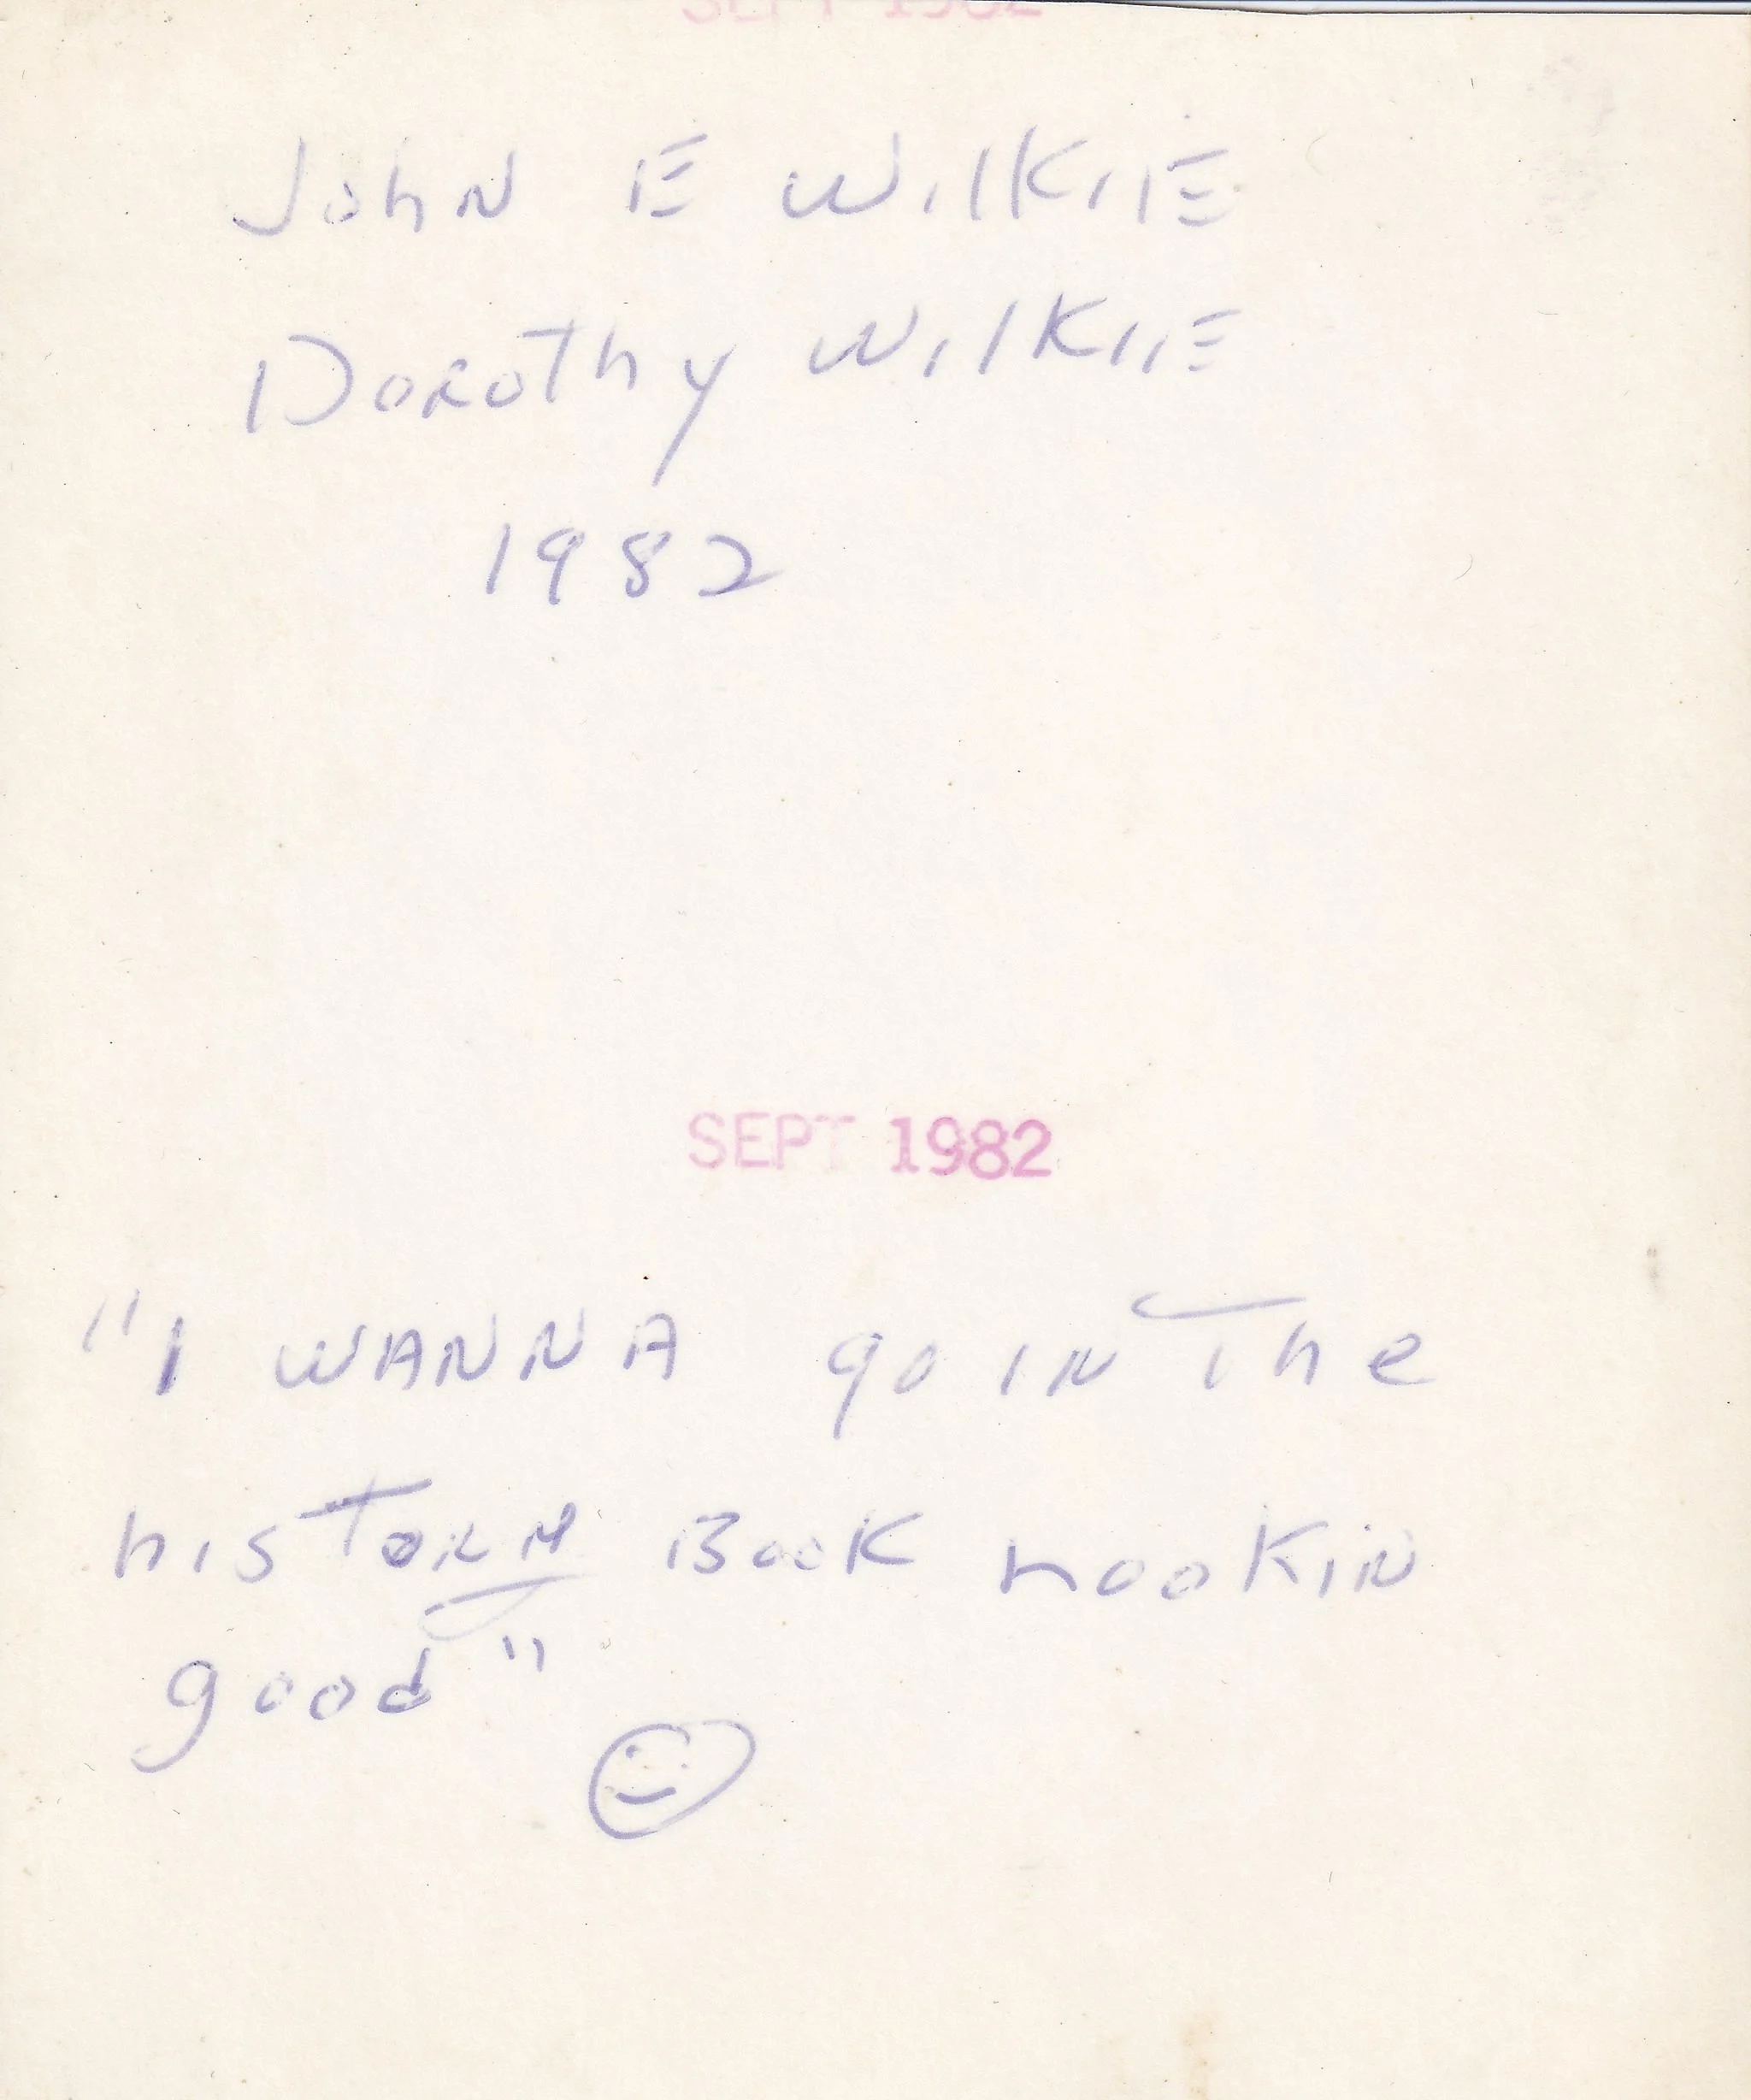 SEPT 1982
JohN E WilKiE
DoRoThy WilKiE
1982
SEPT 1982
"I WANNA go iN The
hisTORy BooK hooKiN
good"